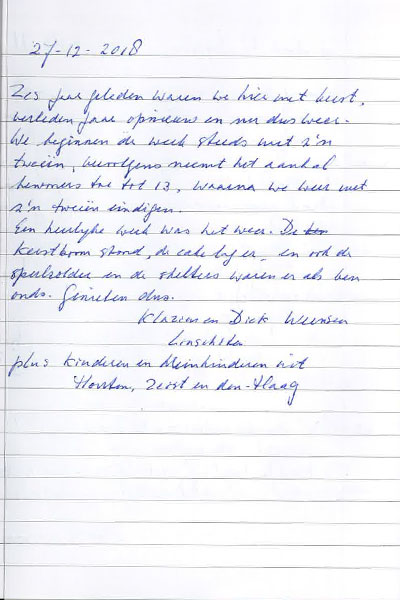 27-12-2018
Zes jaar geleden waren we hier met kerst,
verleden jaar opnieuw en nu dus weer.
We beginnen de week steeds met z'n
tweeën, vervolgens neemt het aantal
bewoners toe tot 13, waarna we weer met
z'n tweeën eindigen.
Een heerlijke week was het weer. De
kerstboom stond, de cake lag er, en ook de
speelzolder en de skelters waren er als
onds. Genieten dus.
Klazien en Dick
Linschoten
plus kinderen en kleinkinderen uit
Houten, Zeist en den-Haag